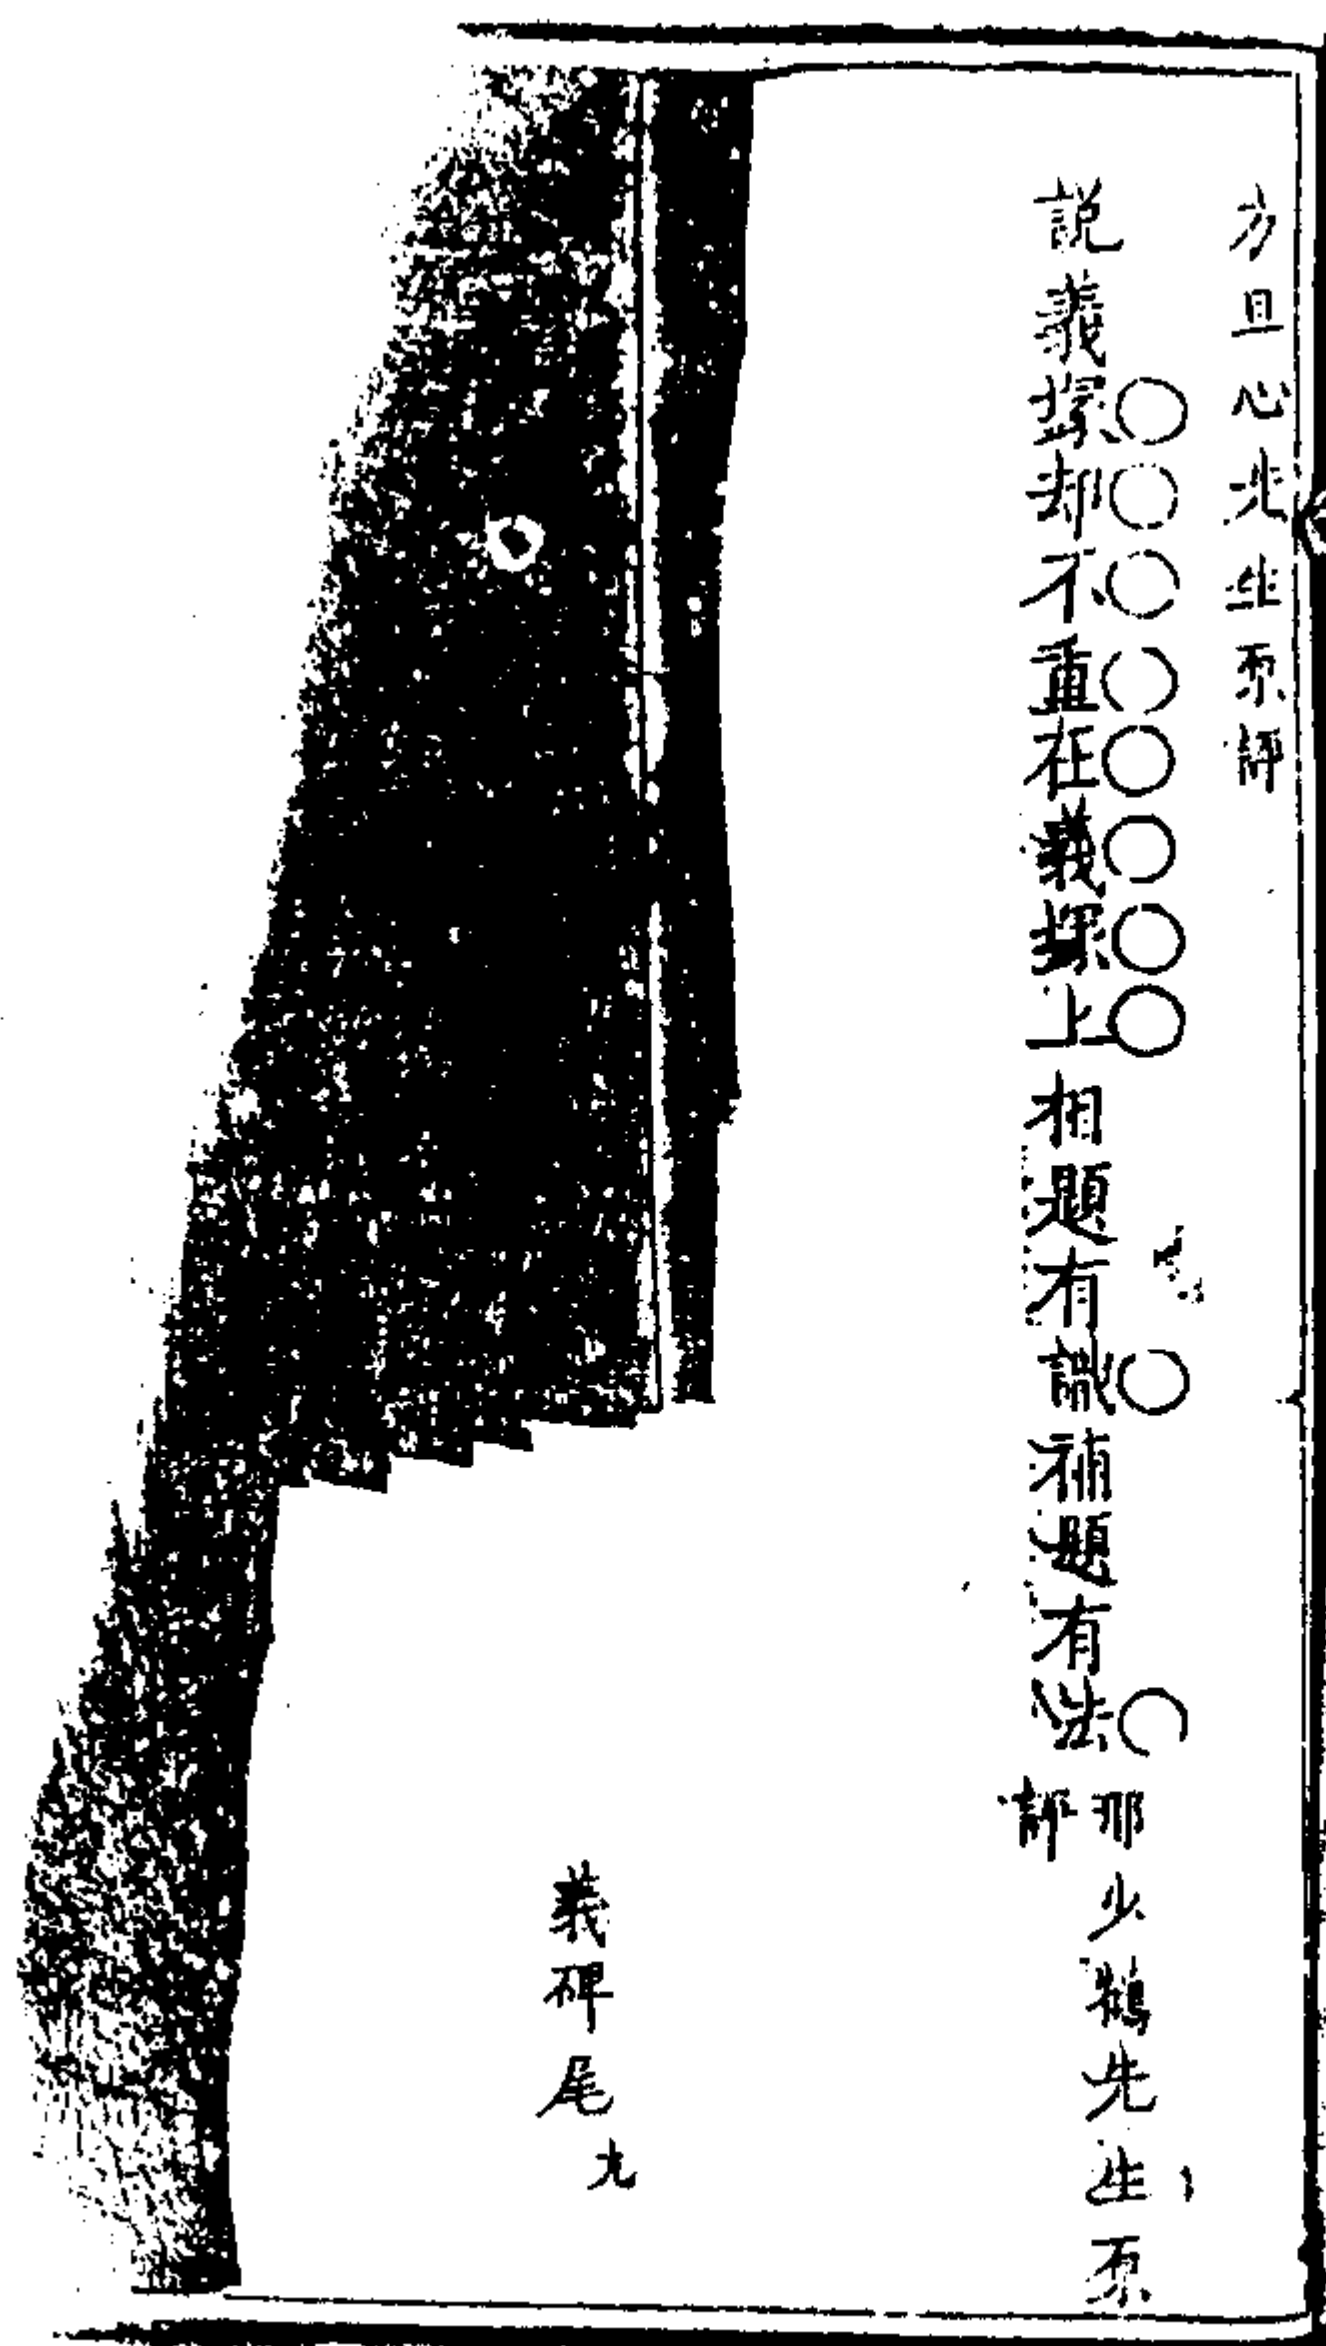 方旦心先生原評
説義塚却不重在義塚上相題有識補題有法
那少鶴先生原
評
義碑尾 九